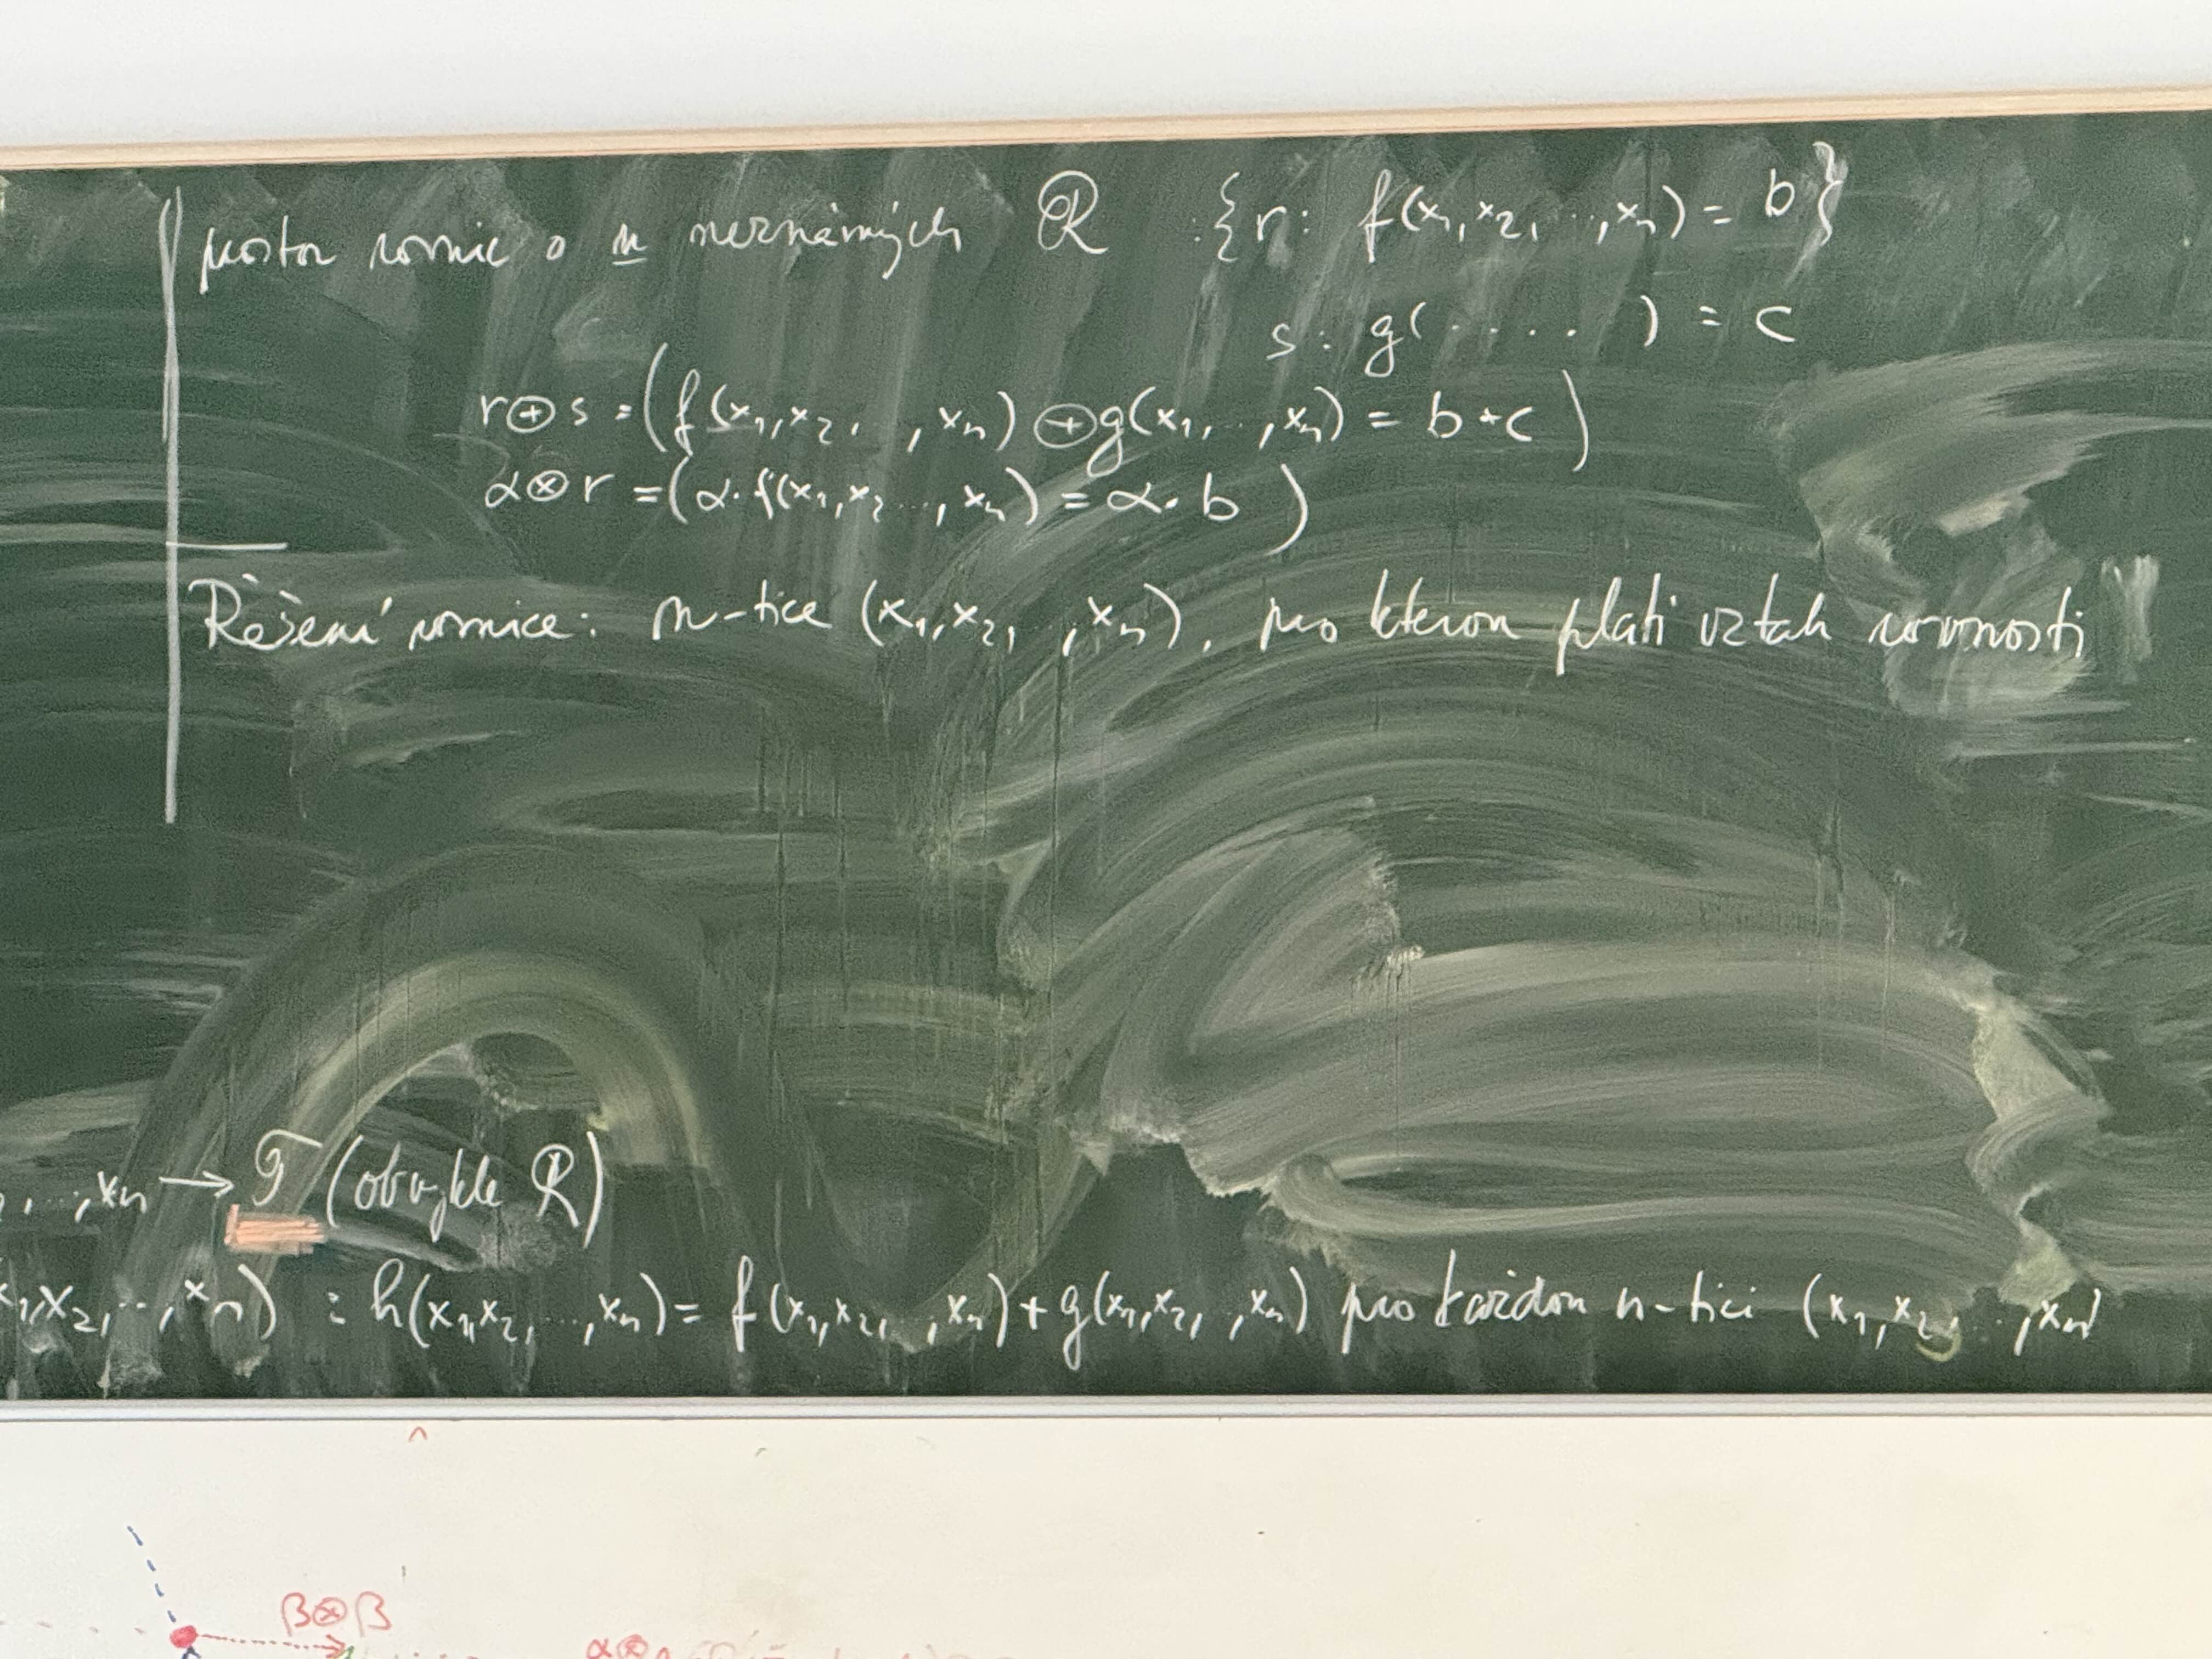 prostor rovnic o n neznámých R : {r: f(x₁,x₂,..,xₙ) = b}
s: g(.....) = c
r⊕s = (f(x₁,x₂,..,xₙ) ⊕ g(x₁,..,xₙ) = b+c)
α⊗r = (α·f(x₁,x₂..,xₙ) = α·b)
Řešení rovnice: n-tice (x₁,x₂, ,xₙ), pro kterou platí vztah rovnosti
,...,xₙ → T (obvykle R)
x₁,x₂,..,xₙ) : h(x₁,x₂,..,xₙ) = f(x₁,x₂,..,xₙ)+g(x₁,x₂, ,xₙ) pro každou n-tici (x₁,x₂,..,xₙ)
β⊗β
α⊗